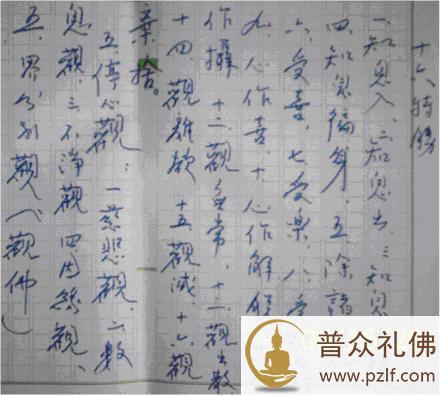 十六特勝
一知息入、二知息出、三知息
四、知息徧身、五、除諸
六、受喜、七受樂、八、受
九、心作喜、十、心作解
作攝 十二觀無常、十三觀出散
十四、觀離欲 十五觀滅、十六觀
棄捨。
五停心觀:一慈悲觀、二數
息觀、三不淨觀 四因緣觀、
五、界分別觀(觀佛)
普众礼佛
www.pzlf.com